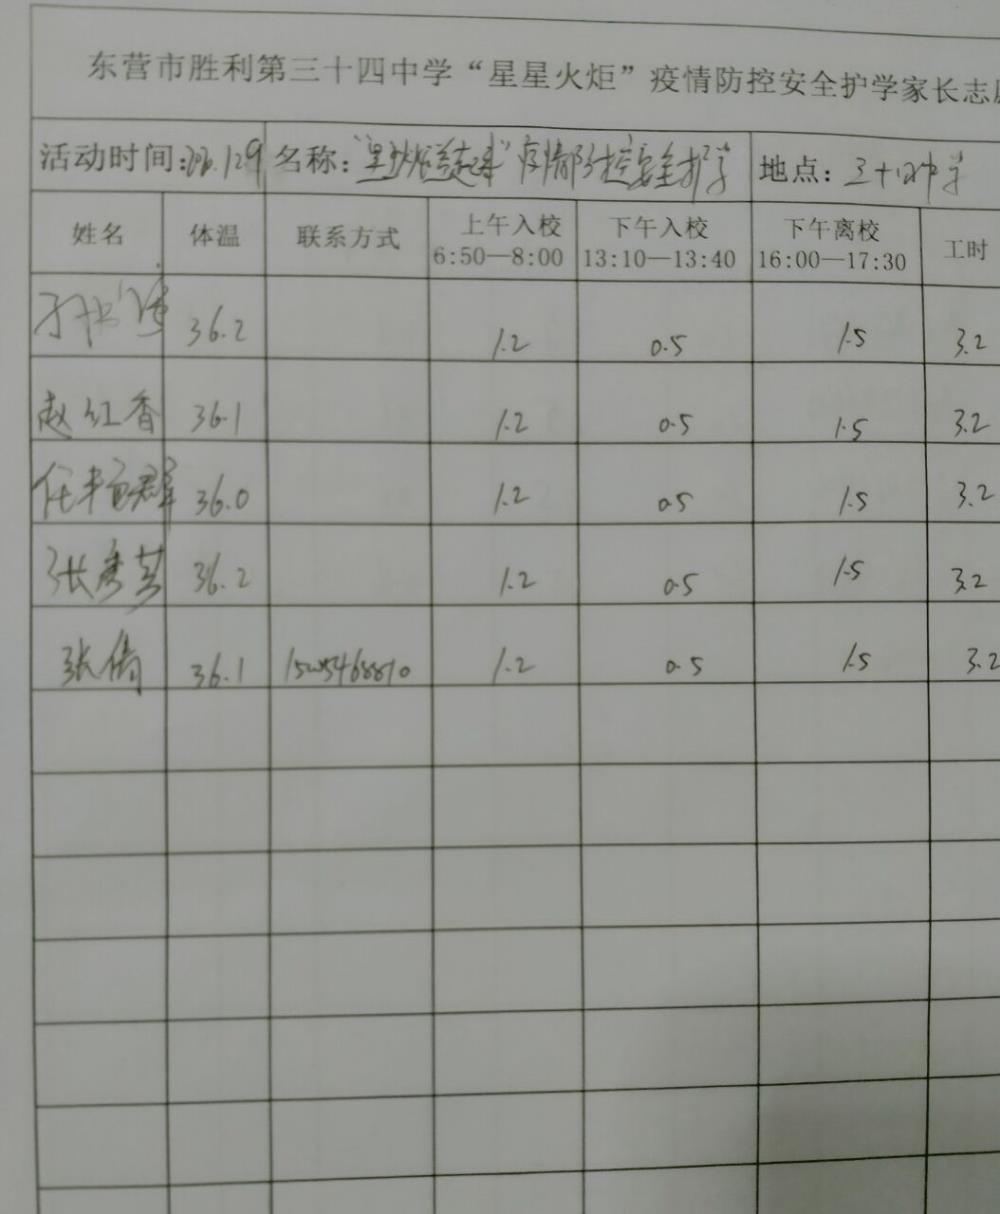 东营市胜利第三十四中学“星星火炬”疫情防控安全护学家长志
活动时间: 名称: 疫情防控安全护学 地点: 三十四中学
姓名 体温 联系方式 上午入校 6:50—8:00 下午入校 13:10—13:40 下午离校 16:00—17:30 工时
36.2 1.2 0.5 1.5 3.2
赵红香 36.1 1.2 0.5 1.5 3.2
36.0 1.2 0.5 1.5 3.2
张秀芸 36.2 1.2 0.5 1.5 3.2
张倩 36.1 1.2 0.5 1.5 3.2